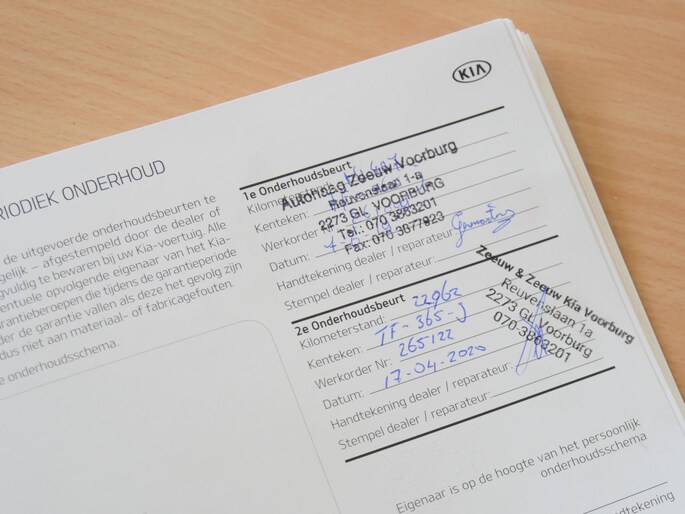 KIA
RIODIEK ONDERHOUD
de uitgevoerde onderhoudsbeurten te
gelijk – afgestempeld door de dealer of
gvuldig te bewaren bij uw Kia-voertuig. Alle
entuele opvolgende eigenaar van het Kia-
arantieberoepen die tijdens de garantieperiode
der de garantie vallen als deze het gevolg zijn
dus niet aan materiaal- of fabricagefouten.
e onderhoudsschema.
1e Onderhoudsbeurt
Kilometerstand:
Kenteken:
Werkorder
Datum:
Handtekening dealer / reparateur:
Stempel dealer / reparateur:
Zeeuw Voorburg
Reuvenslaan 1-a
2273 GL VOORBURG
Tel.: 070 3863201
Fax: 070 3877923
2e Onderhoudsbeurt
Kilometerstand: 22962
Kenteken: TF-365-J
Werkorder Nr: 265122
Datum: 17-04-2020
Handtekening dealer / reparateur:
Stempel dealer / reparateur:
Zeeuw & Zeeuw Kia Voorburg
Reuvenslaan 1a
2273 GL Voorburg
070-3863201
Eigenaar is op de hoogte van het persoonlijk
onderhoudsschema
ndtekening